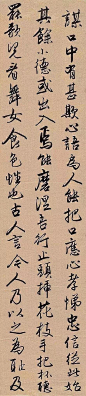 謀口中有甚欺心語為人能把口應心孝悌忠信從此始
其餘小德或出入焉能磨涅吾行止頭插花枝手把杯聽
罷歌童看舞女食色性也古人言今人乃以之為恥及